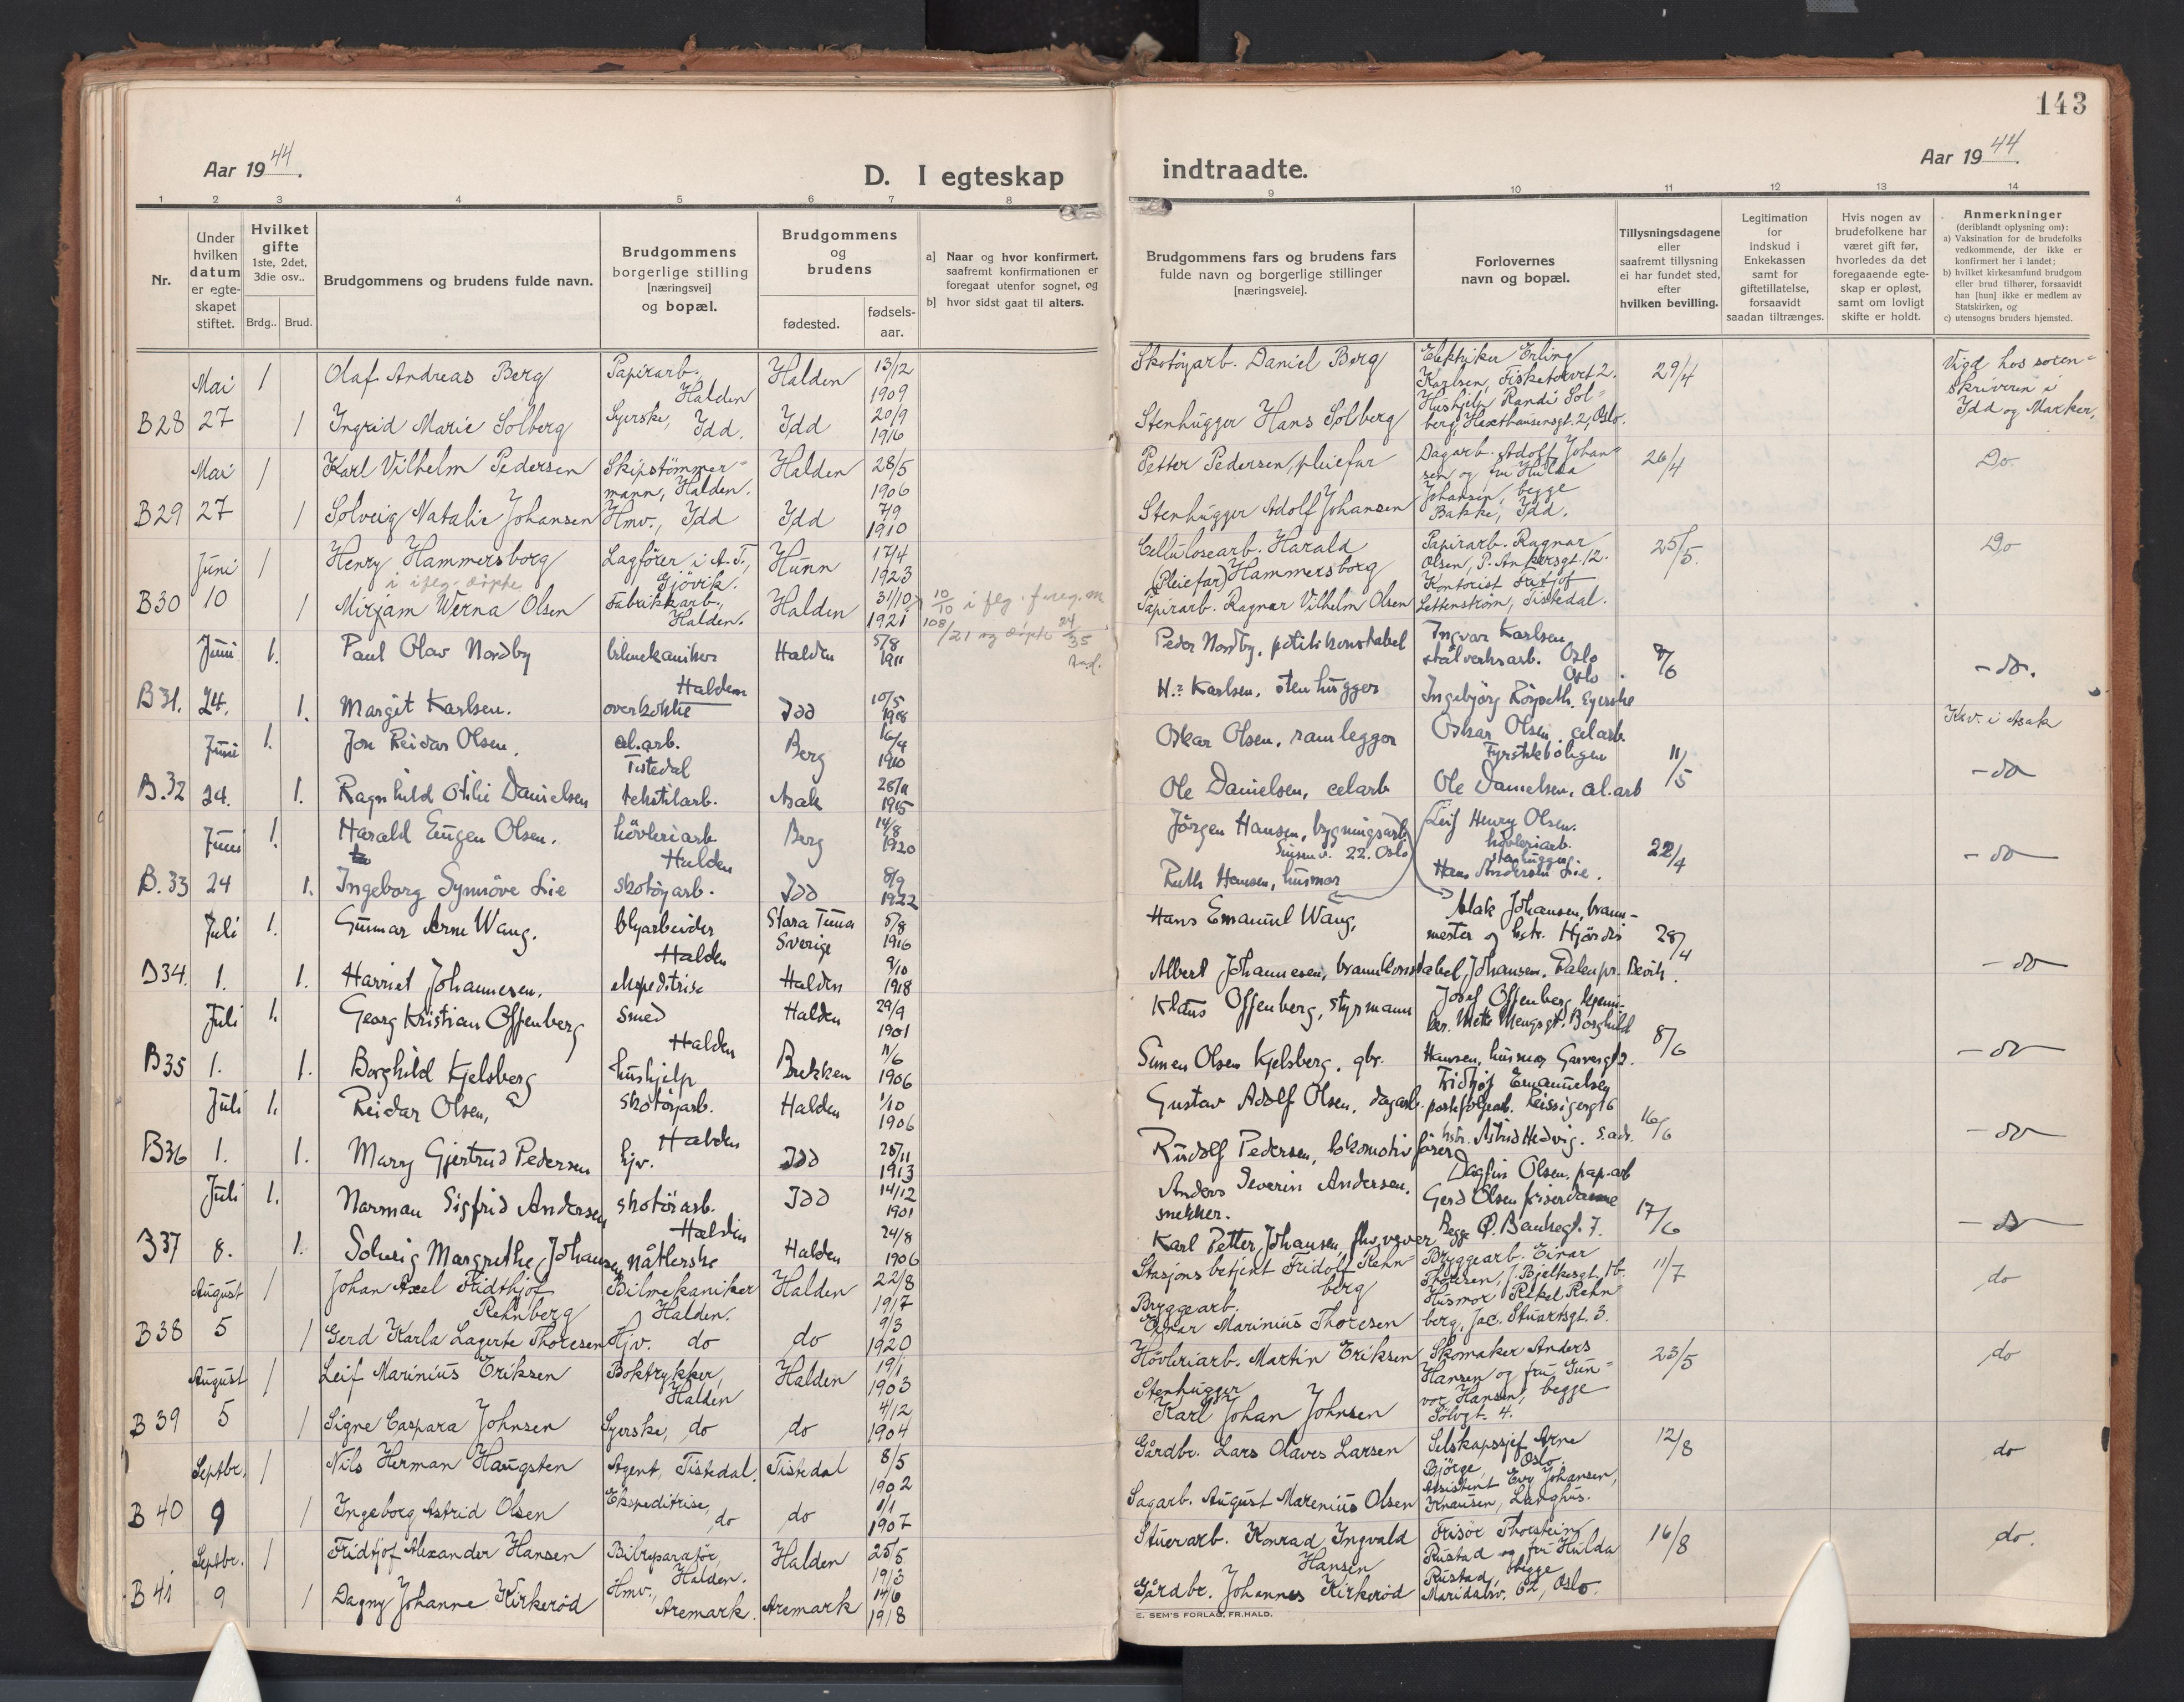 143
Aar 1944.
D. I egteskap indtraadte.
Aar 1944.
1 2 3 4 5 6 7 8 9 10 11 12 13 14
Nr.
Under hvilken datum er egteskapet stiftet.
Hvilket gifte 1ste, 2det, 3die osv..
Brdg.. Brud.
Brudgommens og brudens fulde navn.
Brudgommens borgerlige stilling [næringsvei] og bopæl.
Brudgommens og brudens
fødested.
fødsels-aar.
a] Naar og hvor konfirmert, saafremt konfirmationen er foregaat utenfor sognet, og
b] hvor sidst gaat til alters.
Brudgommens fars og brudens fars fulde navn og borgerlige stillinger [næringsveie].
Forlovernes navn og bopæl.
Tillysningsdagene eller saafremt tillysning ei har fundet sted, efter hvilken bevilling.
Legitimation for indskud i Enkekassen samt for giftetillatelse, forsaavidt saadan tiltrænges.
Hvis nogen av brudefolkene har været gift før, hvorledes da det foregaaende egteskap er opløst, samt om lovligt skifte er holdt.
Anmerkninger (deriblandt oplysning om):
a) Vaksination for de brudefolks vedkommende, der ikke er konfirmert her i landet;
b) hvilket kirkesamfund brudgom eller brud tilhører, forsaavidt han [hun] ikke er medlem av Statskirken, og
c) utensogns bruders hjemsted.
Mai 1 Olaf Andreas Berg Papirarb. Halden Halden 13/12 1909 Skotøyarb. Daniel Berg Elektriker Erling Karlsen, Fisketorvet 2. 29/4 Vigd hos sorenskriveren i Idd og Marker.
B28 27 1 Ingrid Marie Solberg Syerske, Idd. Idd 20/9 1916 Stenhugger Hans Solberg Hushjelp Randi Solberg, Oslo.
Mai 1 Karl Vilhelm Pedersen Skipstømmermann, Halden. Halden 28/5 1906 Petter Pedersen, pleiefar Dagarb. Adolf Johansen og fru Hulda 26/4 Do.
B29 27 1 Solveig Natalie Johansen Hmv., Idd Idd 7/9 1910 Stenhugger Adolf Johansen Johansen, begge Bakke, Idd.
Juni 1 Henry Hammersborg Lagfører i A.T., Gjøvik. Hunn 17/4 1923 Cellulosearb. Harald Hammersborg (Pleiefar) Papirarb. Ragnar Olsen, P. Ankersgt. 12. 25/5. Do
B30 10 1 Mirjam Werna Olsen Fabrikkarb., Halden. Halden 31/10 1921 Papirarb. Ragnar Vilhelm Olsen Kontorist Fritjof Lettenstrøm, Tistedal.
Juni 1. Paul Olav Nordby bilmekaniker Halden Halden 5/8 1911 Peder Nordby, politikonstabel Ingvar Karlsen stålverksarb. Oslo 7/6 -do.
B31. 24. 1. Margit Karlsen. overkokke Idd 10/5 1918 H. Karlsen, stenhugger Ingebjörg syerske Oslo
Juni 1. Jon Reidar Olsen. cel.arb. Tistedal Berg 16/4 1910 Oskar Olsen, Oskar Olsen, cel.arb. Fyrstikkboligen 11/5 Kv. i Asak
B.32 24. 1. Ragnhild Otilie Danielsen tekstilarb. Asak 1915 Ole Danielsen, celarb Ole Danielsen, cel.arb -do
Juni 1. Harald Eugen Olsen. høvleriarb. Halden Berg 14/8 1920 Jörgen Hansen, bygningsarb. 22. Oslo Leif Henry Olsen. høvleriarb. 22/4 -do
B.33 24 1. Ingeborg Synnöve Lie skotöyarb. Idd 8/9 1922 Ruth Hansen, husmor Hans Andersen Lie. stenhugger
Juli 1. Gunnar Arne Wang. blyarbeider Halden Stara Tuna Sverige 5/8 1916 Hans Emanuel Wang, Aslak Johansen, brannmester og hstr. Hjördis 28/4
B34. 1. 1. Harriet Johannesen. ekspeditrise Halden 9/10 1918 Albert Johannesen, brannkonstabel Johansen, -do
Juli 1. Georg Kristian Offenberg smed Halden Halden 29/9 1901 Klaus Offenberg, styrmann Josef Offenberg, Mette Mengsgt. Borghild 8/6
B35 1. 1. Borghild Kjelsberg hushjelp Brekken 11/6 1906 Simen Olsen Kjelsberg, gbr. Hansen, husmor -do
Juli 1. Reidar Olsen, skotöyarb. Halden Halden 1/10 1906 Gustav Adolf Olsen, dagarb. Fridtjof Emanuelsen 16/6
B36 1. 1. Mary Gjertrud Pedersen hjv. Idd 25/11 1913 Rudolf Pedersen, lokomotivfører hstr. Astrid Hedvig. s.ads. -do
Juli 1. Norman Sigfrid Andersen skotöiarb. Halden Idd 14/12 1901 Anders Severin Andersen, snekker. Dagfin Olsen, pap.arb Gerd Olsen friserdame 17/6
B37 8. 1. Solveig Margrethe Johansen nåtlerske Halden 24/8 1906 Karl Petter Johansen, Begge Ø. Bankegt. 7. -do
August 1 Johan Axel Fridthjof Rehnberg Bilmekaniker Halden. Halden 22/8 1917 Stasjonsbetjent Fridolf Rehnberg Bryggearb. Einar Thoresen, J. Bjelkesgt. 1b. 11/7 do
B 38 5 1 Gerd Karla Lagerte Thoresen Hjv. do do 9/3 1920 Bryggearb. Einar Marinius Thoresen Husmor Rakel Rehnberg, Jac. Stuartsgt. 3.
August 1 Leif Marinius Eriksen Boktrykker, Halden Halden 19/1 1903 Høvleriarb. Martin Eriksen Skomaker Anders Hansen og fru Gunvor Hansen, begge 23/5 do
B 39 5 1 Signe Caspara Johnsen Syerske, do do 4/12 1904 Stenhugger Karl Johan Johnsen Sölvgt. 4.
Septbr. 1 Nils Herman Haugsten Agent, Tistedal. Tistedal 8/5 1902 Gårdbr. Lars Olaves Larsen Selskapssjef Arne Bjørge, Oslo. 12/8 do
B 40 9 1 Ingeborg Astrid Olsen Ekspeditrise, do do 1/1 1907 Sagarb. August Marenius Olsen Assistent Evy Johansen, Knausen, Langhus.
Septbr. 1 Fridtjof Alexander Hansen Bilreparatør, Halden. Halden 25/5 1913 Stuerarb. Konrad Ingvald Hansen Frisør Thorstein Rustad og fru Hulda 16/8 do.
B 41 9 1 Dagny Johanne Kirkerød Hmv., Aremark. Aremark 14/6 1918 Gårdbr. Johannes Kirkerød Rustad, begge Maridalsv. 62, Oslo.
E. SEM'S FORLAG, FR.HALD.